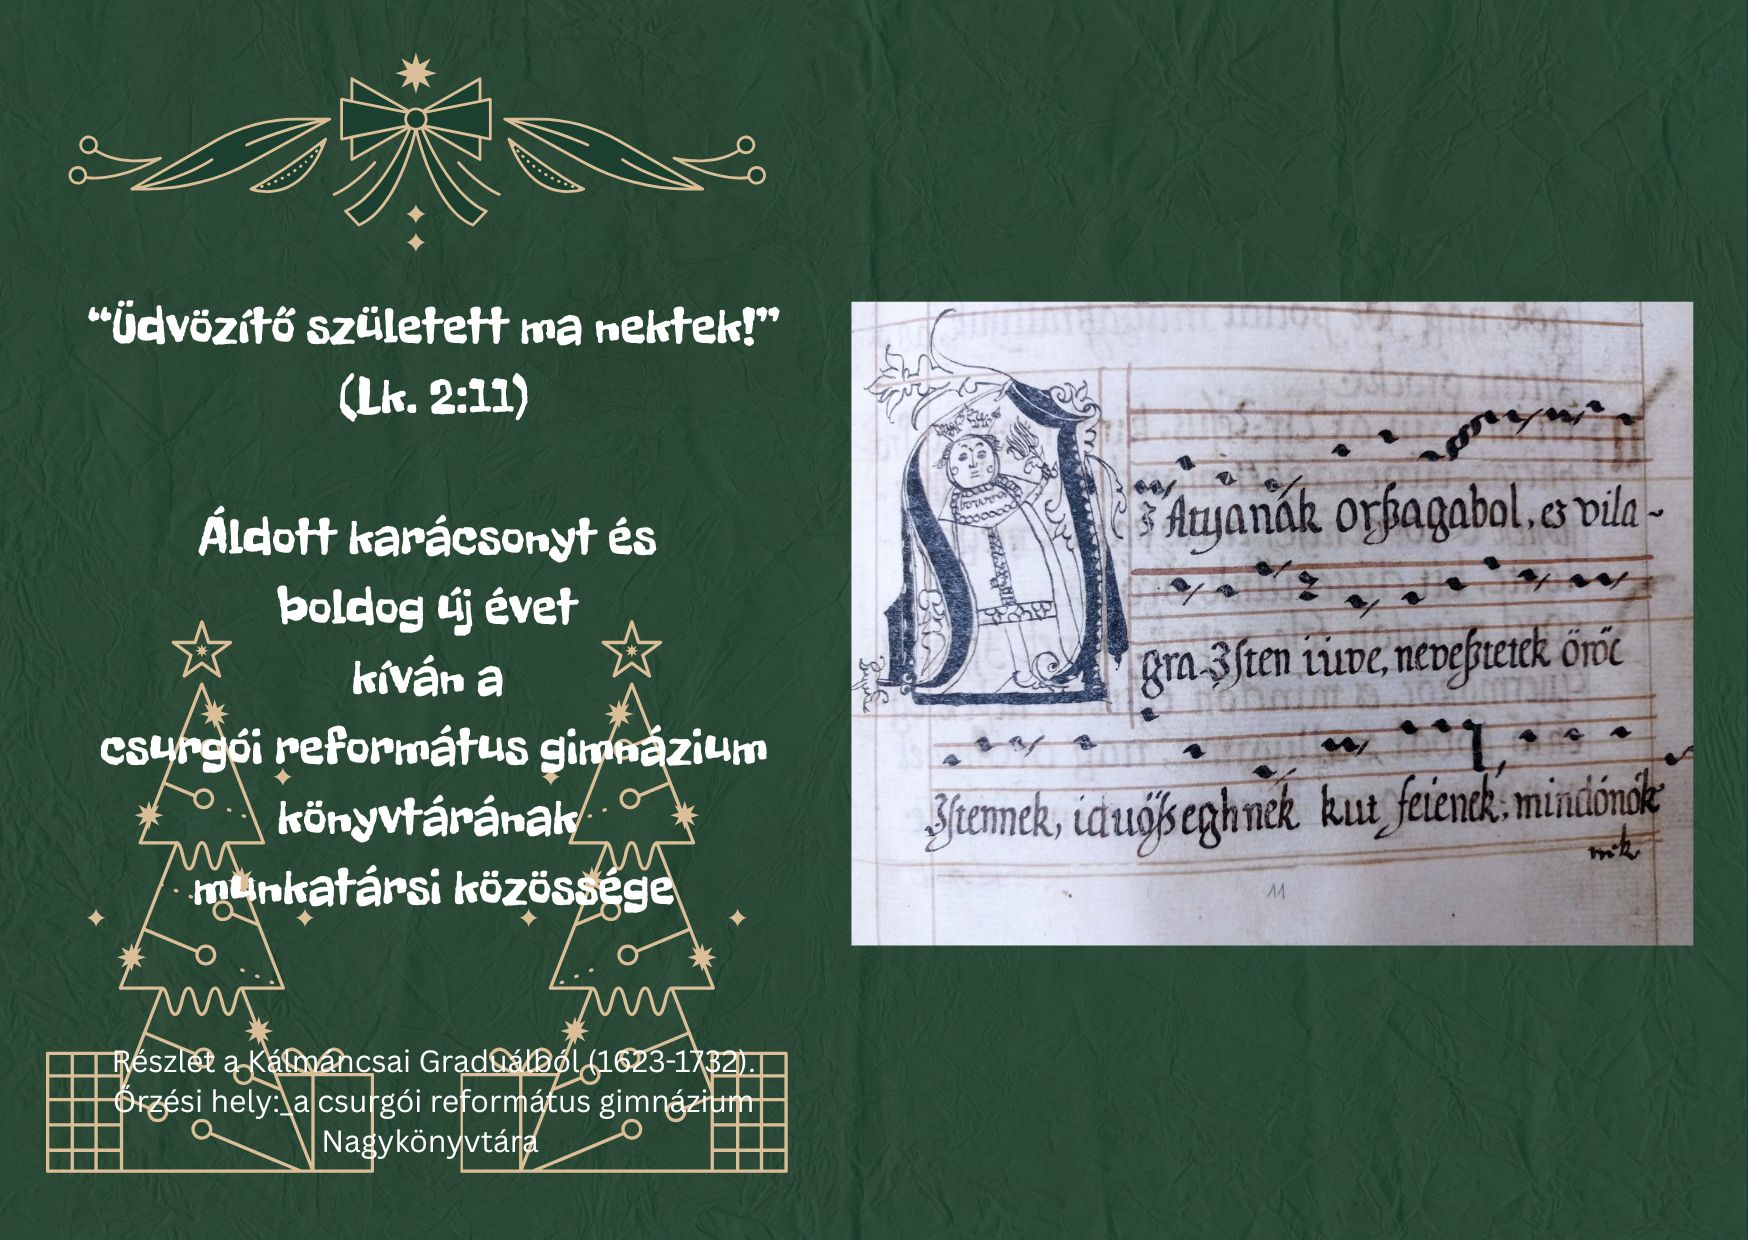 “Üdvözítő született ma nektek!”
(Lk. 2:11)
Áldott karácsonyt és
boldog új évet
kíván a
csurgói református gimnázium
könyvtárának
munkatársi közössége
Részlet a Kálmáncsai Graduálból (1623-1732).
Őrzési hely:_a csurgói református gimnázium
Nagykönyvtára
Atyanák orßagabol, es vila-
gra Isten iuve, neveßtetek öröc
Istennek, iduößseghnek kut feienek, mindónók
nik
11